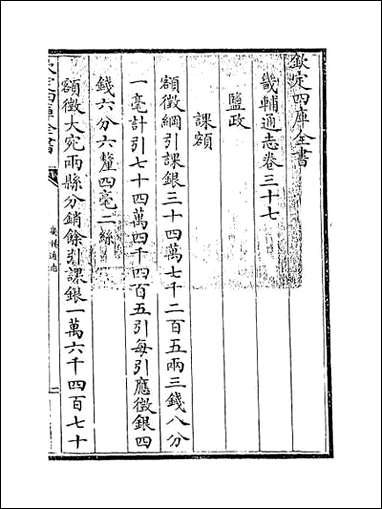 欽定四庫全書
畿輔通志卷三十七
鹽政
課額
額徵綱引課銀三十四萬七千二百五兩三錢八分
一毫計引七十四萬四千四百五引每引應徵銀四
錢六分六釐四毫二絲
額徵大宛兩縣分銷餘引課銀一萬六千四百七十
欽定四庫全書
畿輔通志
一